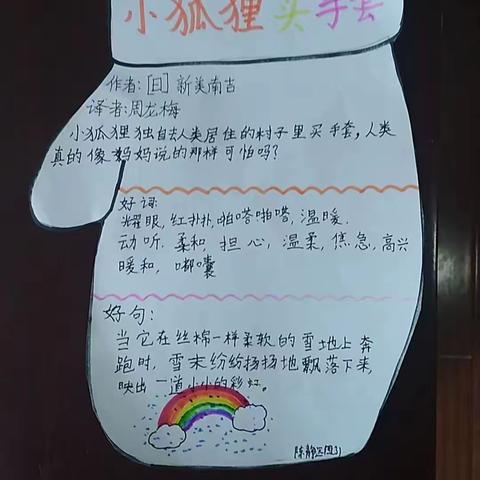 小狐狸买手套
作者:[日]新美南吉
译者:周龙梅
小狐狸独自去人类居住的村子里买手套,人类
真的像妈妈说的那样可怕吗?
好词:
耀眼,红扑扑,啪嗒啪嗒,温暖.
动听.柔和,担心,温柔,焦急,高兴
暖和,嘟囔
好句:
当它在丝棉一样柔软的雪地上奔
跑时,雪末纷纷扬扬地飘落下来,
映出一道小小的彩虹。